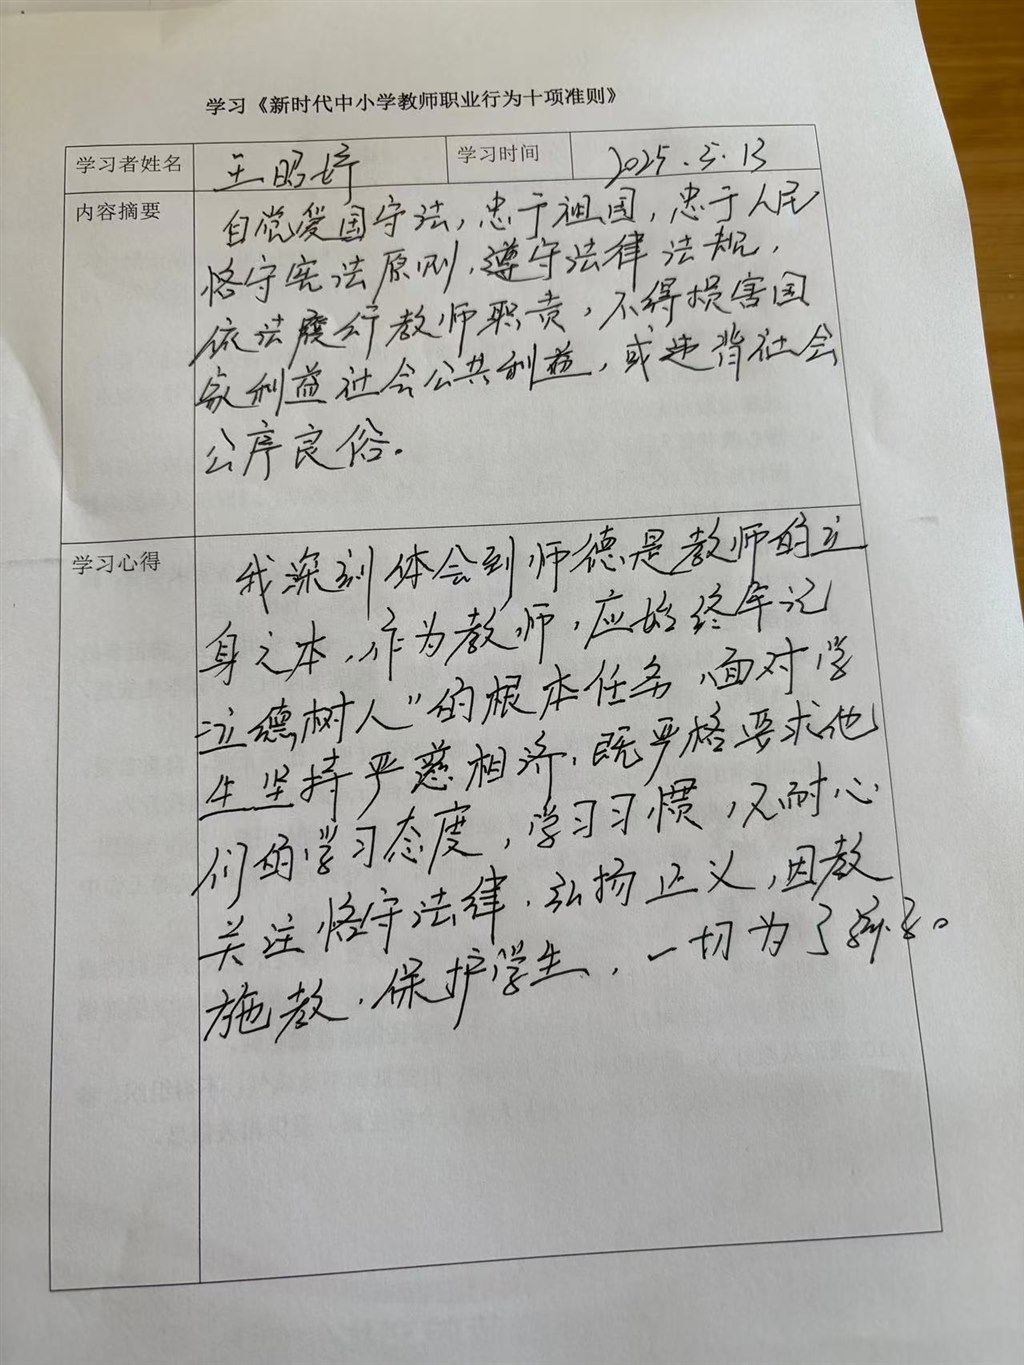 学习《新时代中小学教师职业行为十项准则》
学习者姓名 王昭婷 学习时间 2025.5.13
内容摘要
自觉爱国守法,忠于祖国,忠于人民
恪守宪法原则,遵守法律法规,
依法履行教师职责,不得损害国
家利益社会公共利益,或违背社会
公序良俗。
学习心得
我深刻体会到师德是教师的立
身之本,作为教师,应始终牢记
“立德树人”的根本任务,面对学
生坚持严慈相济,既严格要求他
们的学习态度,学习习惯,又耐心
关注恪守法律,弘扬正义,因教
施教,保护学生,一切为了孩子。